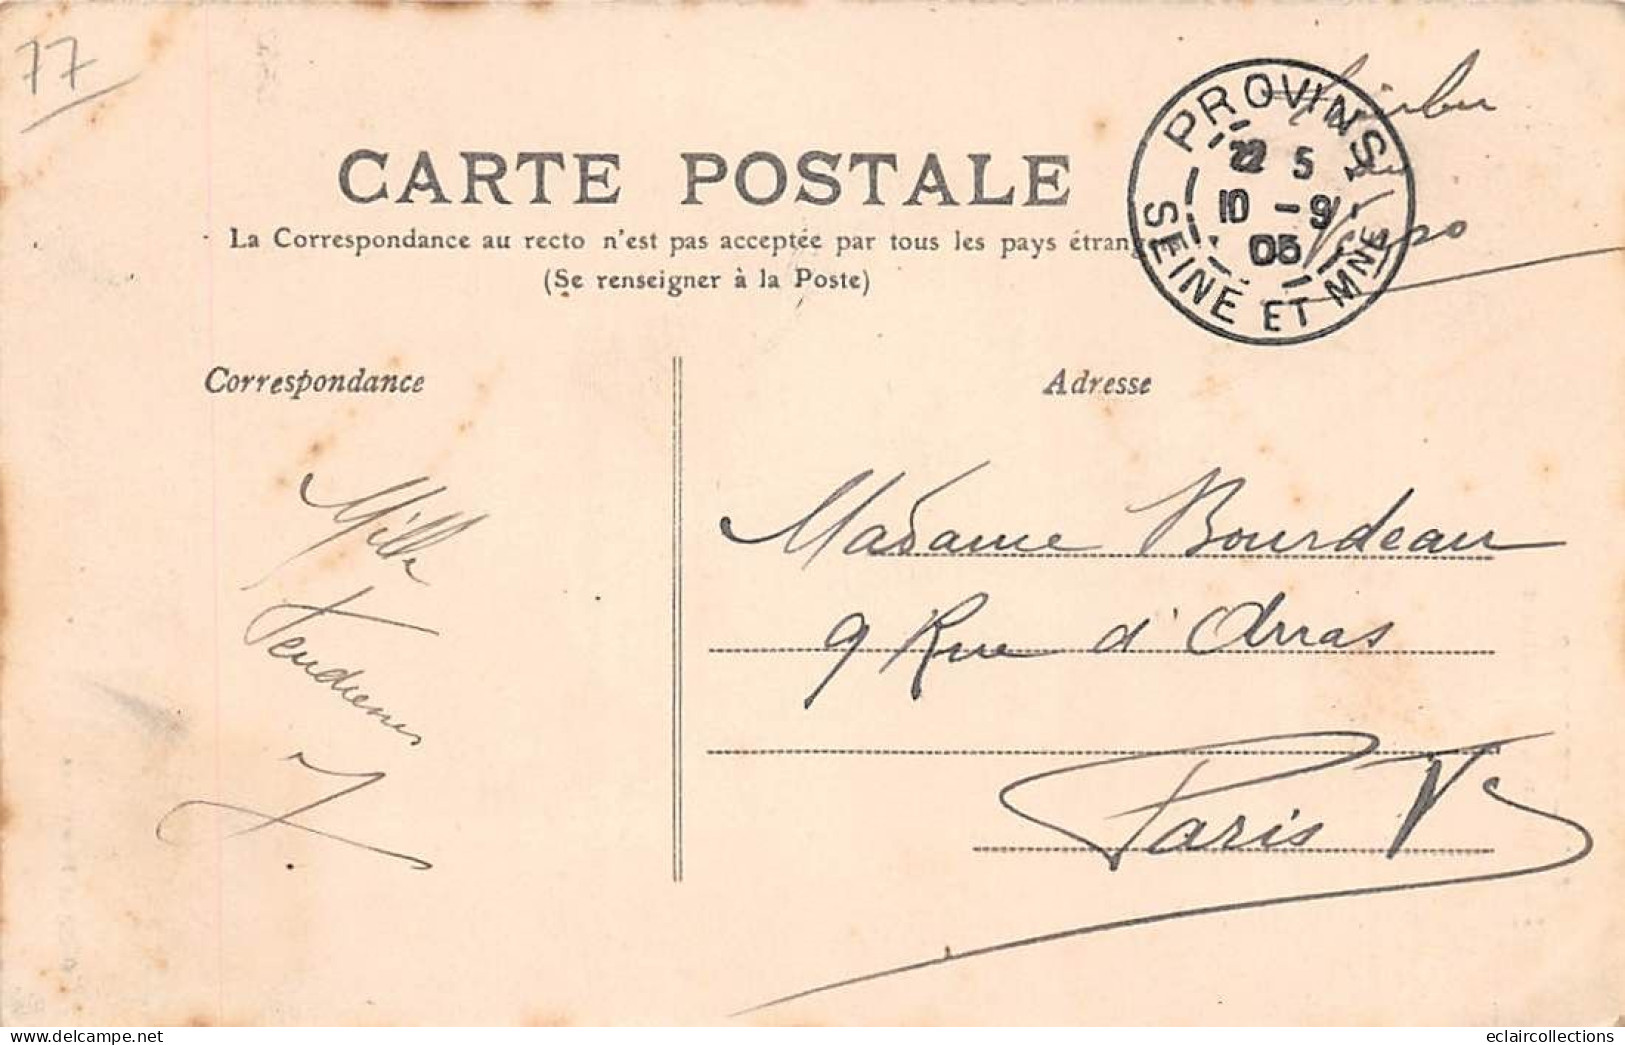 77
Timbre
au
Verso
CARTE POSTALE
La Correspondance au recto n'est pas acceptée par tous les pays étrang
(Se renseigner à la Poste)
PROVINS
22 5
10 - 9
05
SEINE ET MNE
Correspondance
Adresse
Mille
Tendresses
Madame Bourdeau
9 Rue d'Arras
Paris Ve
eclaircollections